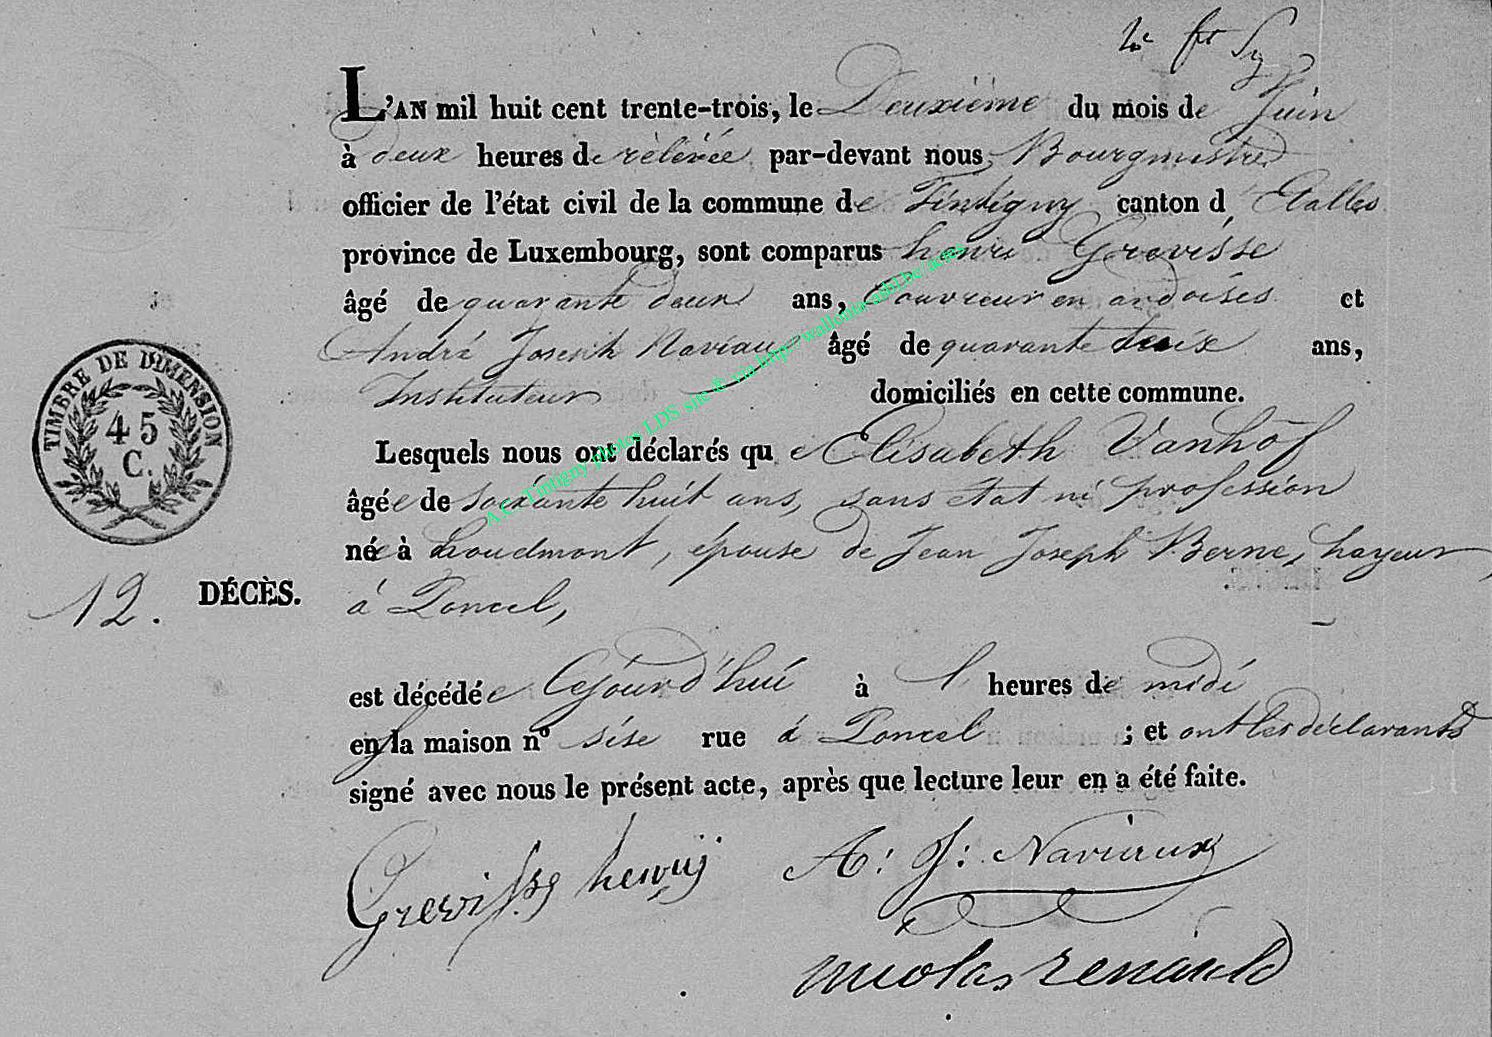 L'AN mil huit cent trente-trois, le Deuxième du mois de Juin
à deux heures de rélévée par-devant nous Bourgmestre
officier de l'état civil de la commune de Tintigny canton d, Etalles
province de Luxembourg, sont comparus henri Grevisse
âgé de quarante deux ans, Couvreur en ardoises et
André Joseph Naviau âgé de quarante ans,
Instituteur domiciliés en cette commune.
Lesquels nous ont déclarés qu e Elisabeth Vanhôf
âgée de soixante huit ans, sans état ni profession
née à houdmont, épouse de Jean Joseph Berne, hayeur
12. DÉCÈS. à Poncel,
est décédée Cejourd'hui à 1 heures de midi
en la maison nº sise rue à Poncel ; et ont les déclarants
signé avec nous le présent acte, après que lecture leur en a été faite.
Grevisse henrij A: J: Naviaux
nicolas renauld
TIMBRE DE DIMENSION
45
C.
A.C. Tintigny photos LDS site © via http wallonia asbl be actes